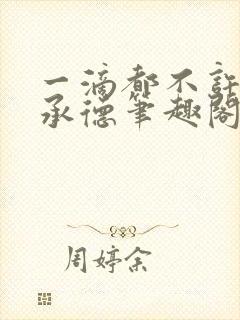 一滴都不許
承德筆趣閣
周婷余